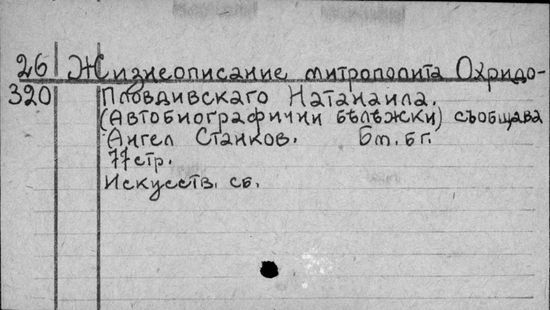 26 Жизнеописание митрополита Охридо-
320 Пловдивскаго Натанаила.
(Автобиографични бѣлѣжки) съобщава
Ангел Станков. Бм. бг.
77 стр.
Искуств. сб.